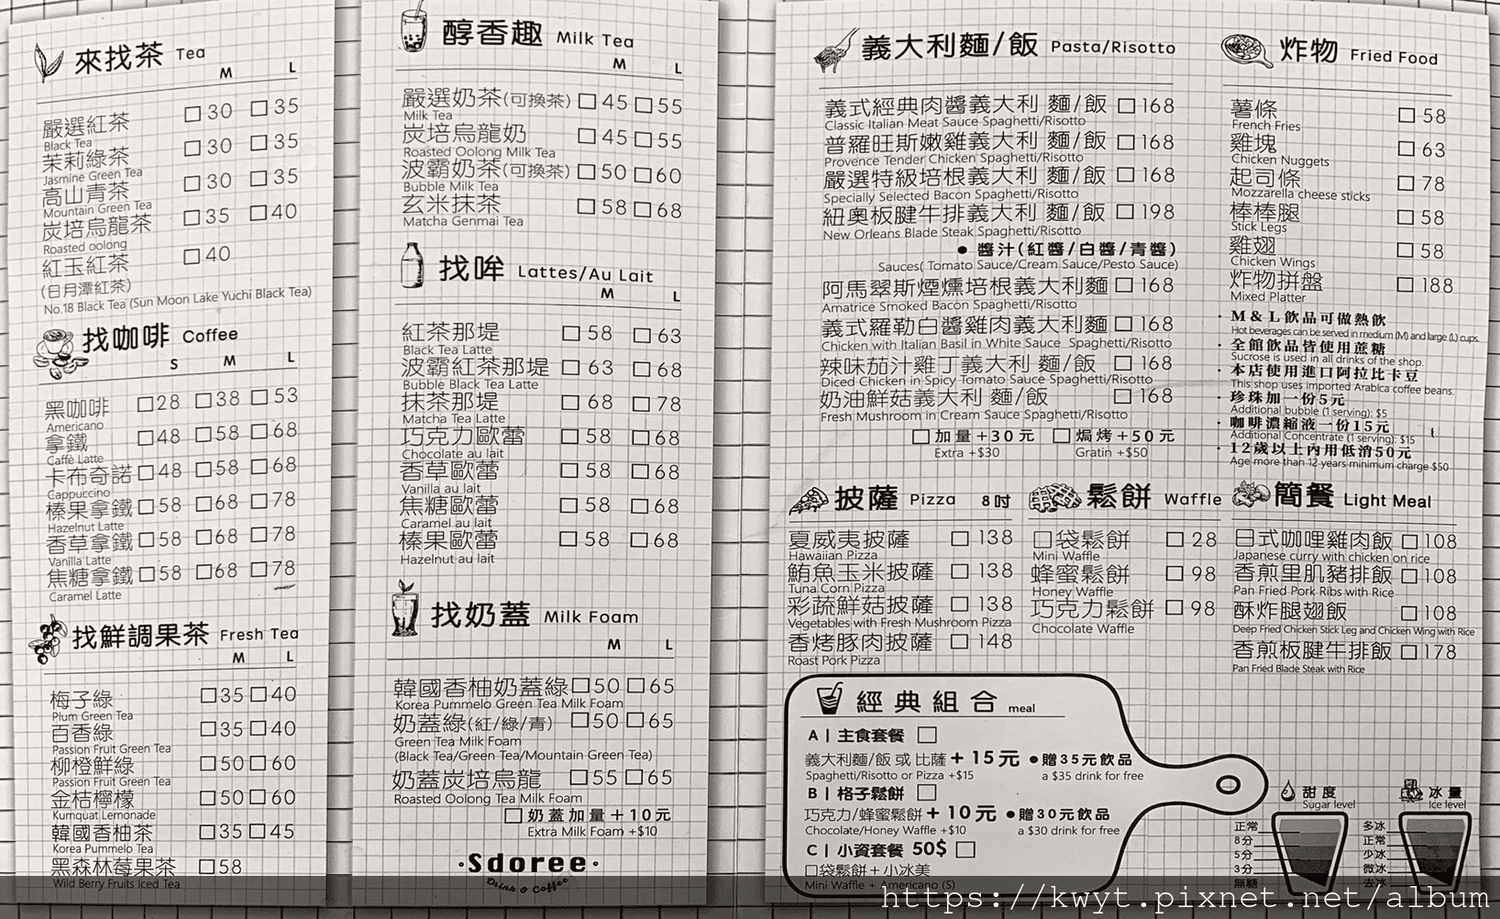 來找茶 Tea
M L
嚴選紅茶 □30 □35
Black Tea
茉莉綠茶 □30 □35
Jasmine Green Tea
高山青茶 □30 □35
Mountain Green Tea
炭培烏龍茶 □35 □40
Roasted oolong
紅玉紅茶 □40
(日月潭紅茶)
No.18 Black Tea (Sun Moon Lake Yuchi Black Tea)
找咖啡 Coffee
S M L
黑咖啡 □28 □38 □53
Americano
拿鐵 □48 □58 □68
Caffè Latte
卡布奇諾 □48 □58 □68
Cappuccino
榛果拿鐵 □58 □68 □78
Hazelnut Latte
香草拿鐵 □58 □68 □78
Vanilla Latte
焦糖拿鐵 □58 □68 □78
Caramel Latte
找鮮調果茶 Fresh Tea
M L
梅子綠 □35 □40
Plum Green Tea
百香綠 □35 □40
Passion Fruit Green Tea
柳橙鮮綠 □50 □60
Passion Fruit Green Tea
金桔檸檬 □50 □60
Kumquat Lemonade
韓國香柚茶 □35 □45
Korea Pummelo Tea
黑森林莓果茶 □58
Wild Berry Fruits Iced Tea
醇香趣 Milk Tea
M L
嚴選奶茶(可換茶) □45 □55
Milk Tea
炭培烏龍奶 □45 □55
Roasted Oolong Milk Tea
波霸奶茶(可換茶) □50 □60
Bubble Milk Tea
玄米抹茶 □58 □68
Matcha Genmai Tea
找哞 Lattes/Au Lait
M L
紅茶那堤 □58 □63
Black Tea Latte
波霸紅茶那堤 □63 □68
Bubble Black Tea Latte
抹茶那堤 □68 □78
Matcha Tea Latte
巧克力歐蕾 □58 □68
Chocolate au lait
香草歐蕾 □58 □68
Vanilla au lait
焦糖歐蕾 □58 □68
Caramel au lait
榛果歐蕾 □58 □68
Hazelnut au lait
找奶蓋 Milk Foam
M L
韓國香柚奶蓋綠 □50 □65
Korea Pummelo Green Tea Milk Foam
奶蓋綠(紅/綠/青) □50 □65
Green Tea Milk Foam
(Black Tea/Green Tea/Mountain Green Tea)
奶蓋炭培烏龍 □55 □65
Roasted Oolong Tea Milk Foam
□奶蓋加量+10元
Extra Milk Foam +$10
·Sdoree·
Drink & Coffee
義大利麵/飯 Pasta/Risotto
義式經典肉醬義大利 麵/飯 □168
Classic Italian Meat Sauce Spaghetti/Risotto
普羅旺斯嫩雞義大利 麵/飯 □168
Provence Tender Chicken Spaghetti/Risotto
嚴選特級培根義大利 麵/飯 □168
Specially Selected Bacon Spaghetti/Risotto
紐奧板腱牛排義大利 麵/飯 □198
New Orleans Blade Steak Spaghetti/Risotto
●醬汁(紅醬/白醬/青醬)
Sauces( Tomato Sauce/Cream Sauce/Pesto Sauce)
阿馬翠斯煙燻培根義大利麵 □168
Amatrice Smoked Bacon Spaghetti/Risotto
義式羅勒白醬雞肉義大利麵 □168
Chicken with Italian Basil in White Sauce Spaghetti/Risotto
辣味茄汁雞丁義大利 麵/飯 □168
Diced Chicken in Spicy Tomato Sauce Spaghetti/Risotto
奶油鮮菇義大利 麵/飯 □168
Fresh Mushroom in Cream Sauce Spaghetti/Risotto
□加量+30元 □焗烤+50元
Extra +$30 Gratin +$50
炸物 Fried Food
薯條 □58
French Fries
雞塊 □63
Chicken Nuggets
起司條 □78
Mozzarella cheese sticks
棒棒腿 □58
Stick Legs
雞翅 □58
Chicken Wings
炸物拼盤 □188
Mixed Platter
·M&L飲品可做熱飲
Hot beverages can be served in medium (M) and large (L) cups.
·全館飲品皆使用蔗糖
Sucrose is used in all drinks of the shop.
·本店使用進口阿拉比卡豆
This shop uses imported Arabica coffee beans.
·珍珠加一份5元
Additional bubble (1 serving): $5
·咖啡濃縮液一份15元
Additional Concentrate (1 serving): $15
·12歲以上內用低消50元
Age more than 12 years minimum charge $50
披薩 Pizza 8吋
夏威夷披薩 □138
Hawaiian Pizza
鮪魚玉米披薩 □138
Tuna Corn Pizza
彩蔬鮮菇披薩 □138
Vegetables with Fresh Mushroom Pizza
香烤豚肉披薩 □148
Roast Pork Pizza
鬆餅 Waffle
口袋鬆餅 □28
Mini Waffle
蜂蜜鬆餅 □98
Honey Waffle
巧克力鬆餅 □98
Chocolate Waffle
簡餐 Light Meal
日式咖哩雞肉飯 □108
Japanese curry with chicken on rice
香煎里肌豬排飯 □108
Pan Fried Pork Ribs with Rice
酥炸腿翅飯 □108
Deep Fried Chicken Stick Leg and Chicken Wing with Rice
香煎板腱牛排飯 □178
Pan Fried Blade Steak with Rice
經典組合 meal
A | 主食套餐 □
義大利麵/飯 或 比薩+15元 ●贈35元飲品
Spaghetti/Risotto or Pizza +$15 a $35 drink for free
B | 格子鬆餅 □
巧克力/蜂蜜鬆餅+10元 ●贈30元飲品
Chocolate/Honey Waffle +$10 a $30 drink for free
C | 小資套餐 50$ □
口袋鬆餅+小冰美
Mini Waffle + Americano (S)
甜度 Sugar level
正常
8分
5分
3分
無糖
冰量 Ice level
多冰
正常
少冰
微冰
去冰
https://kwyt.pixnet.net/album